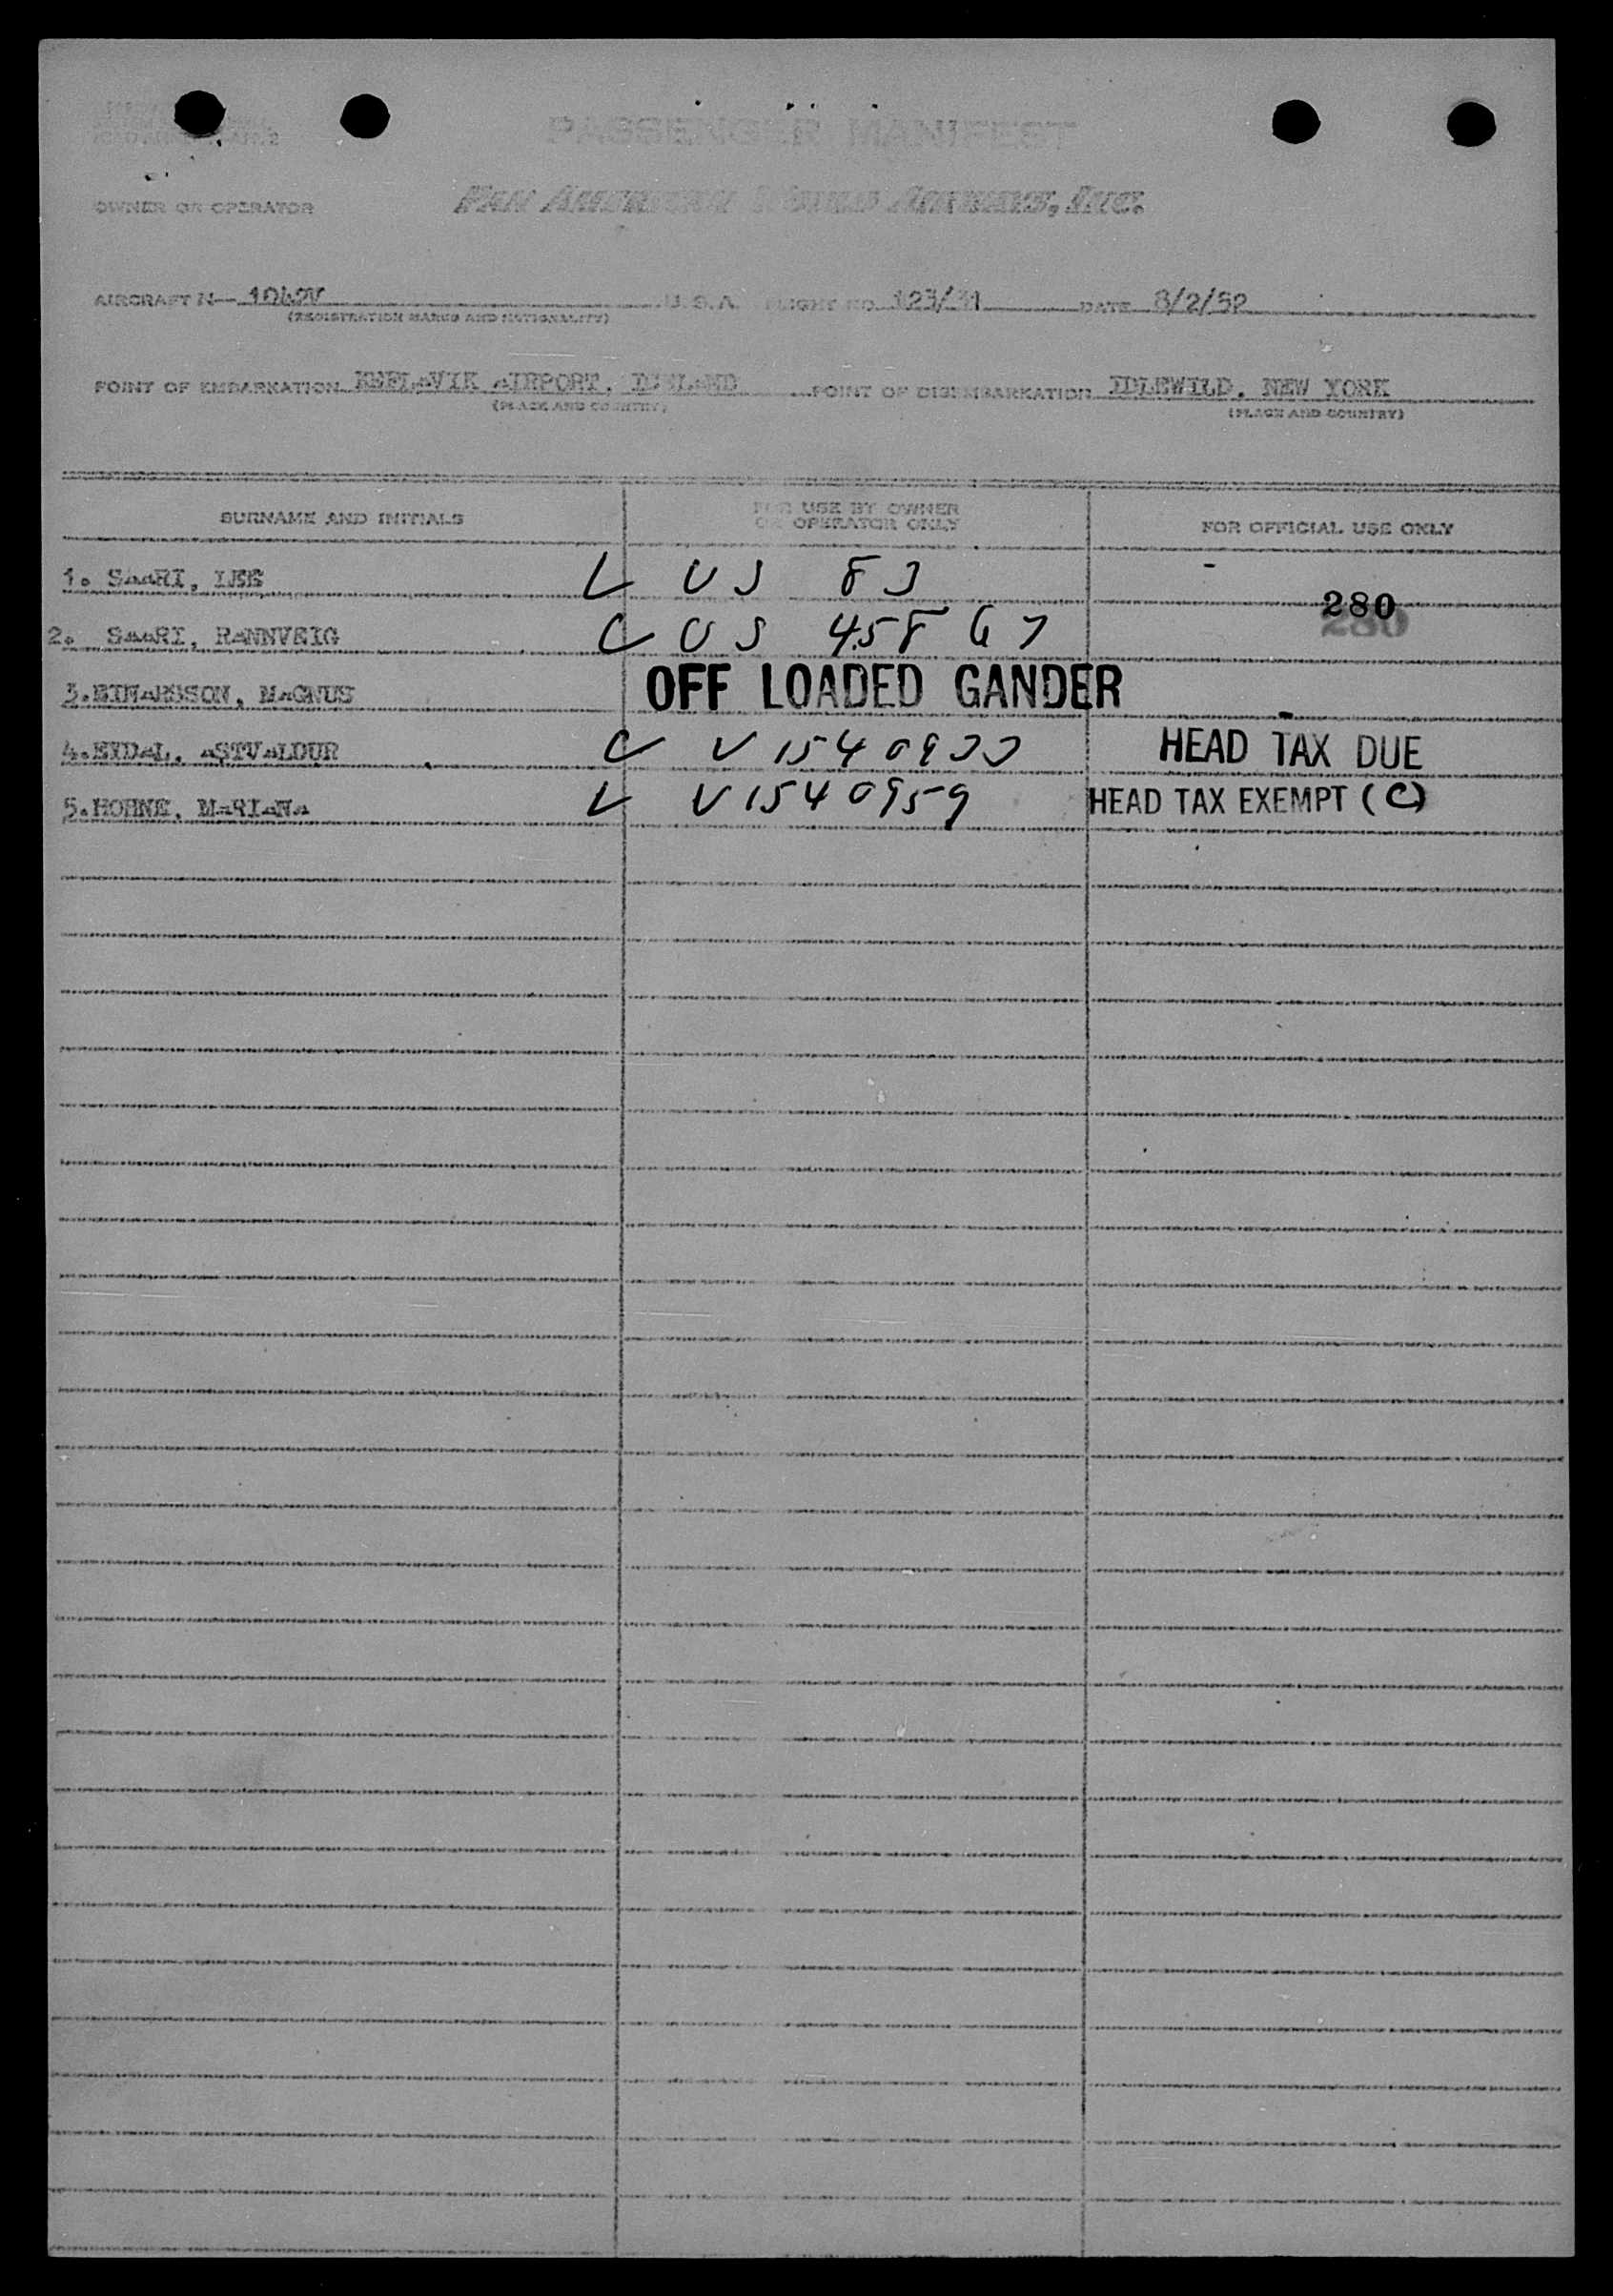 PASSENGER MANIFEST
OWNER OR OPERATOR PAN AMERICAN WORLD AIRWAYS, INC.
AIRCRAFT N— 1042V U.S.A. FLIGHT NO. 123/31 DATE 8/2/52
(REGISTRATION MARKS AND NATIONALITY)
POINT OF EMBARKATION KEFLAVIK AIRPORT, ICELAND POINT OF DISEMBARKATION IDLEWILD, NEW YORK
(PLACE AND COUNTRY) (PLACE AND COUNTRY)
SURNAME AND INITIALS FOR USE BY OWNER OR OPERATOR ONLY FOR OFFICIAL USE ONLY
1. SAARI, LEE US 83
280
2. SAARI, RANNVEIG US 458 67
3. EINARSSON, MAGNUS OFF LOADED GANDER
4. EYDAL, ASTVALDUR V 1540933 HEAD TAX DUE
5. HOHNE, MARIANA V 1540959 HEAD TAX EXEMPT (C)